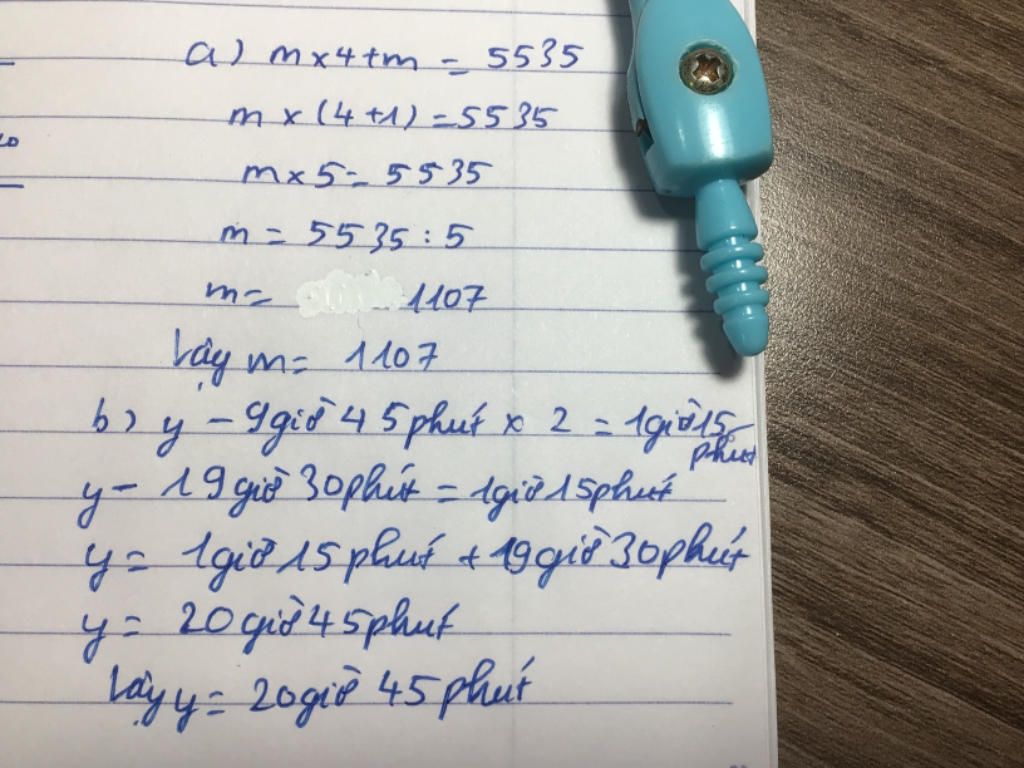 a) m x 4 + m = 5535
m x (4 + 1) = 5535
m x 5 = 5535
m = 5535 : 5
m = 1107
Vậy m = 1107
b) y - 9 giờ 45 phút x 2 = 1 giờ 15 phút
y - 19 giờ 30 phút = 1 giờ 15 phút
y = 1 giờ 15 phút + 19 giờ 30 phút
y = 20 giờ 45 phút
Vậy y = 20 giờ 45 phút